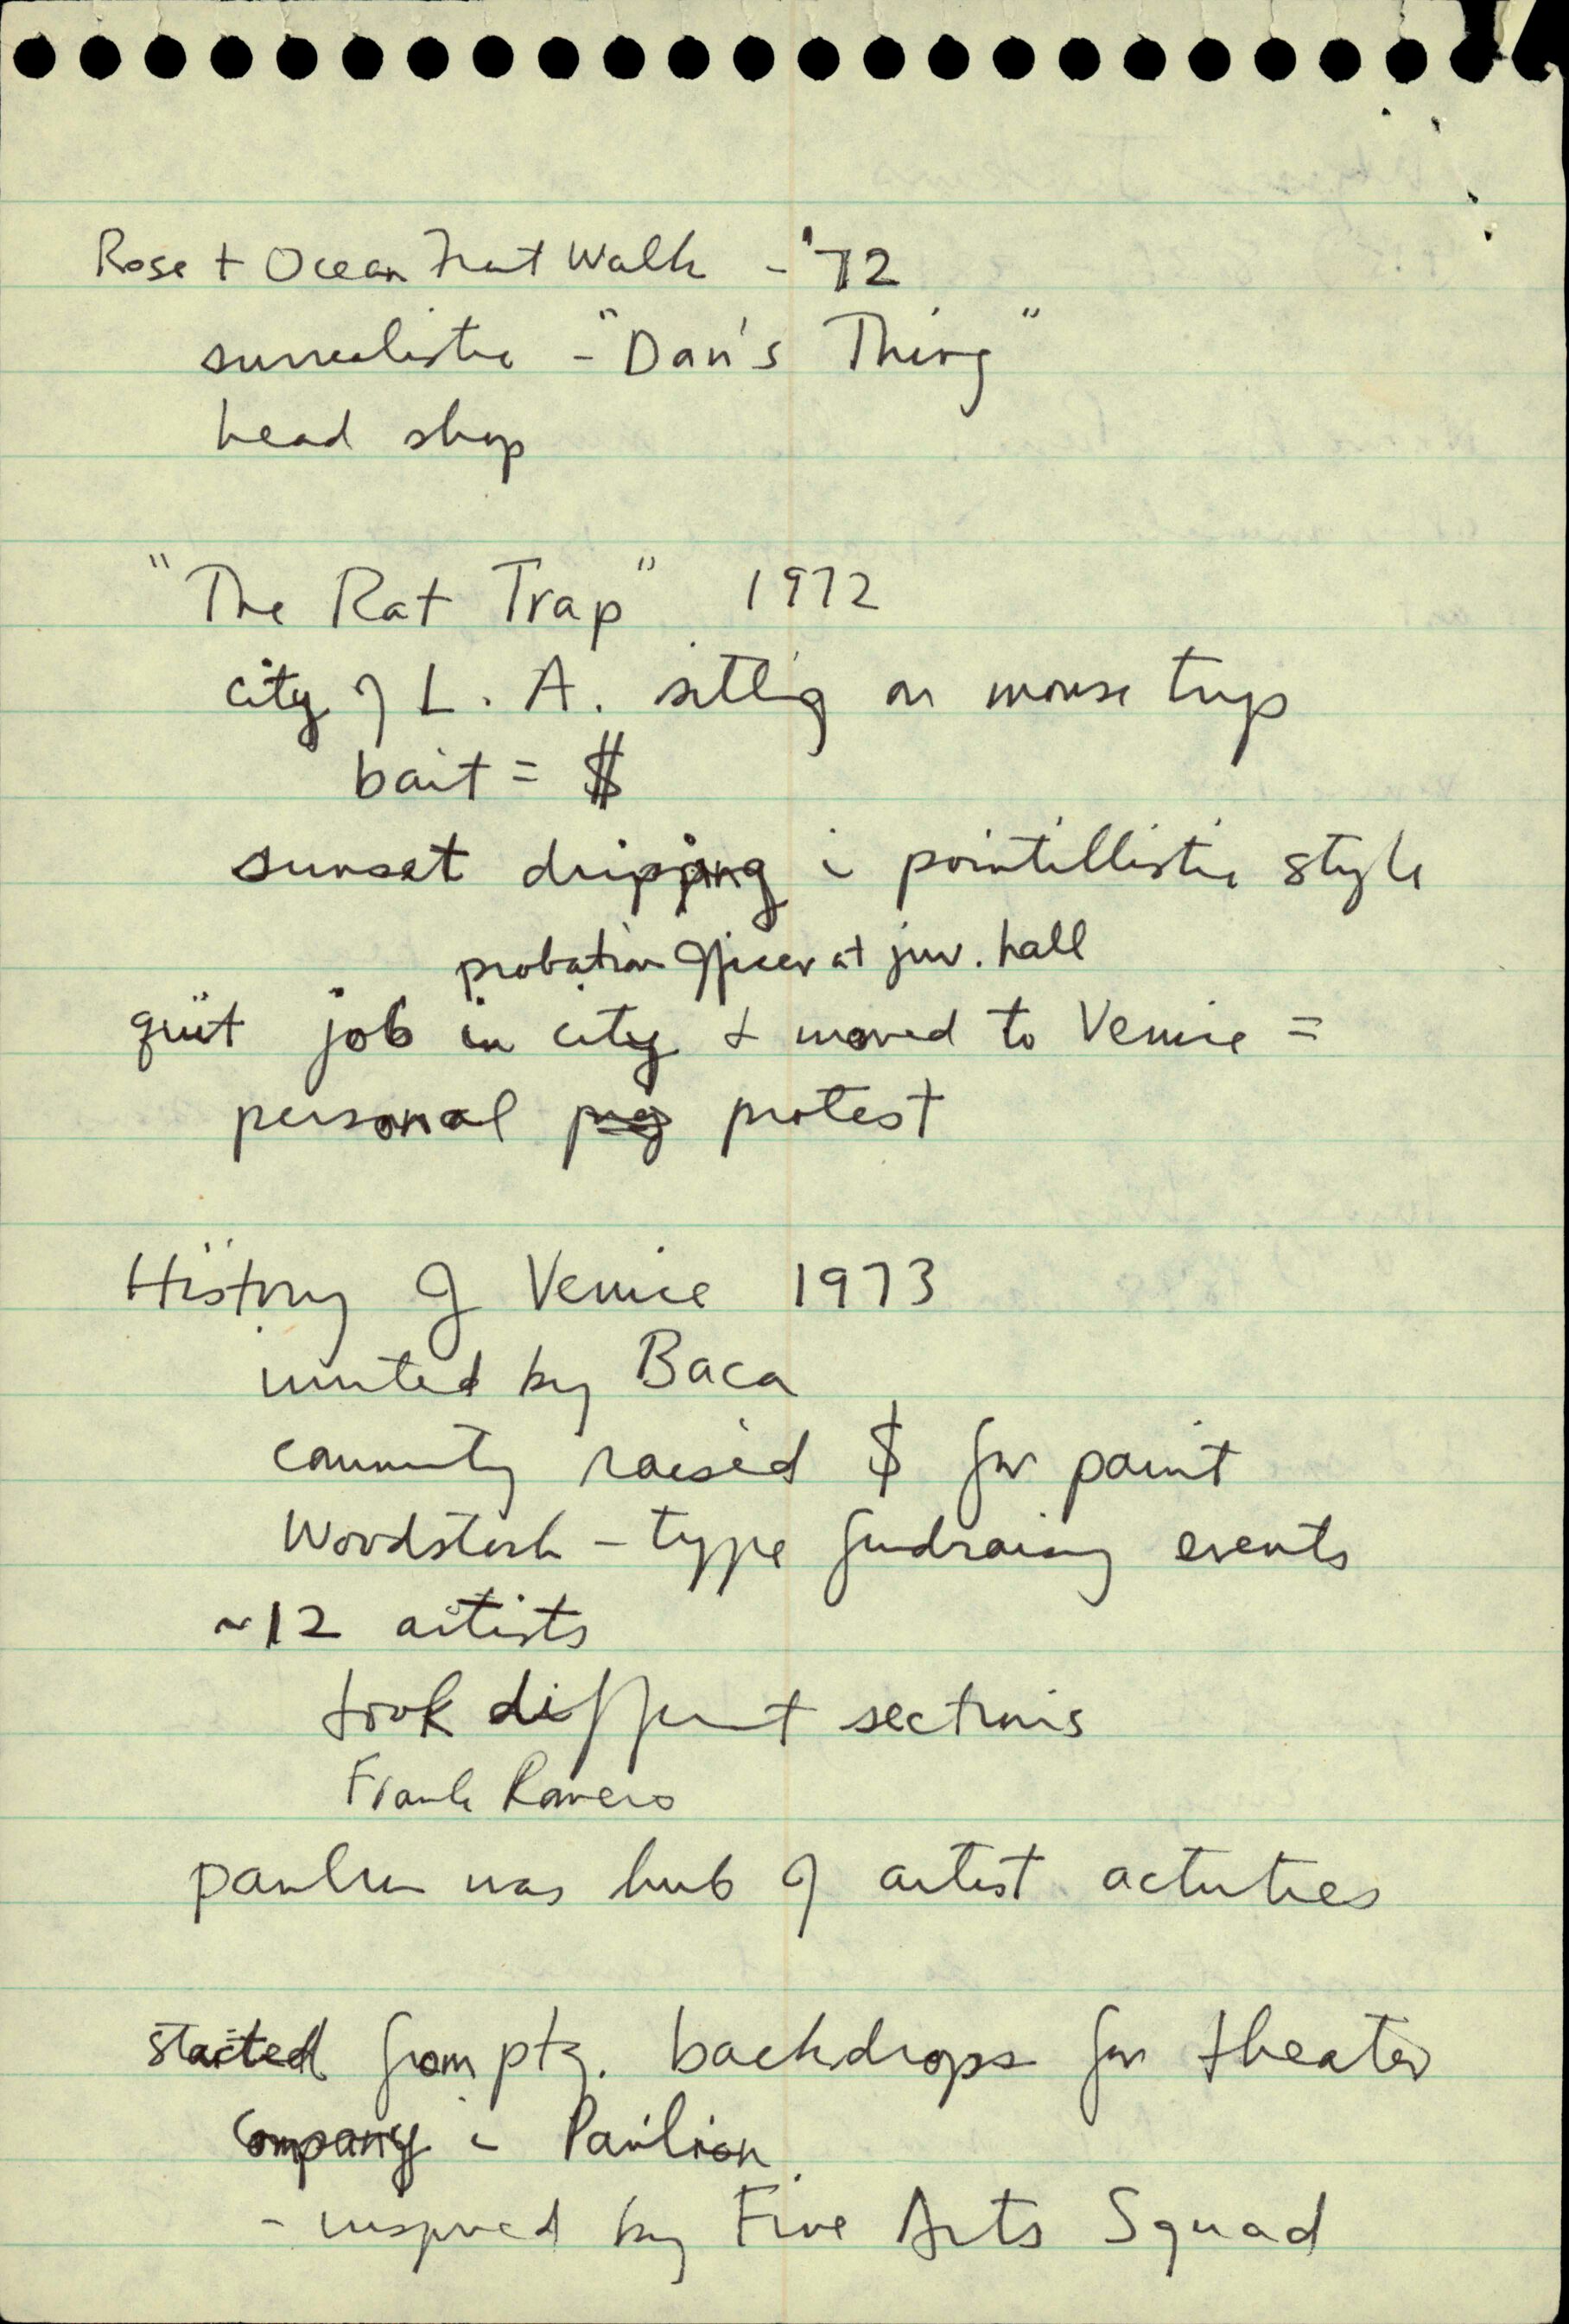 Rose + Ocean Front Walk - '72
surrealistic - "Dan's Thing"
head shop
"The Rat Trap" 1972
city of L.A. sitting on mouse trap
bait = $
sunset dripping in pointillistic style
probation officer at juv. hall
quit job in city + moved to Venice =
personal protest
History of Venice 1973
invited by Baca
community raised $ for paint
Woodstock-type fundraising events
~12 artists
took different sections
Frank Romero
pavilion was hub of artist activities
started from ptg. backdrops for theater
company in Pavilion
- inspired by Fine Arts Squad